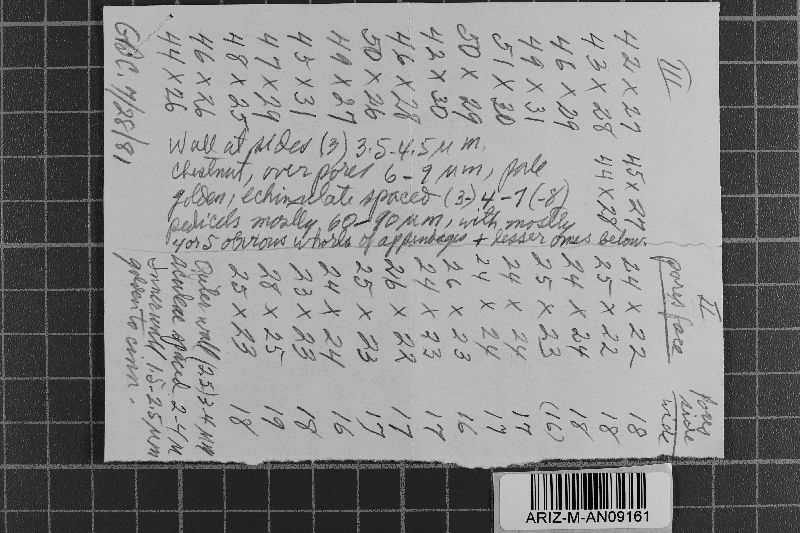 III
42 x 27 45 x 29
43 x 28 44 x 28
46 x 29
49 x 31
51 x 30
50 x 29
42 x 30
46 x 28
50 x 26
49 x 27
45 x 31
47 x 29
48 x 25
46 x 26
44 x 26
7/28/81
Wall at sides (3) 3.5-4.5 µ m.
chestnut, over pores 6-9 µm, pale
golden, echinulate spaced (3-)4-7(-8)
pedicels mostly 60-90 µm, with mostly
4 or 5 obvious whorls of appendages + lesser ones below.
II
pores face pores side
24 x 22 18
25 x 22 18
24 x 24 18
25 x 23 (16)
24 x 24 17
24 x 24 17
26 x 23 16
24 x 23 17
26 x 22 17
25 x 23 17
24 x 24 16
23 x 23 18
28 x 25 19
25 x 23 18
Outer wall (2.5)3-4 µm
aculeae spaced 2-4 µ
Inner wall 1.5-2.5 µm
golden to cinn.
ARIZ-M-AN09161